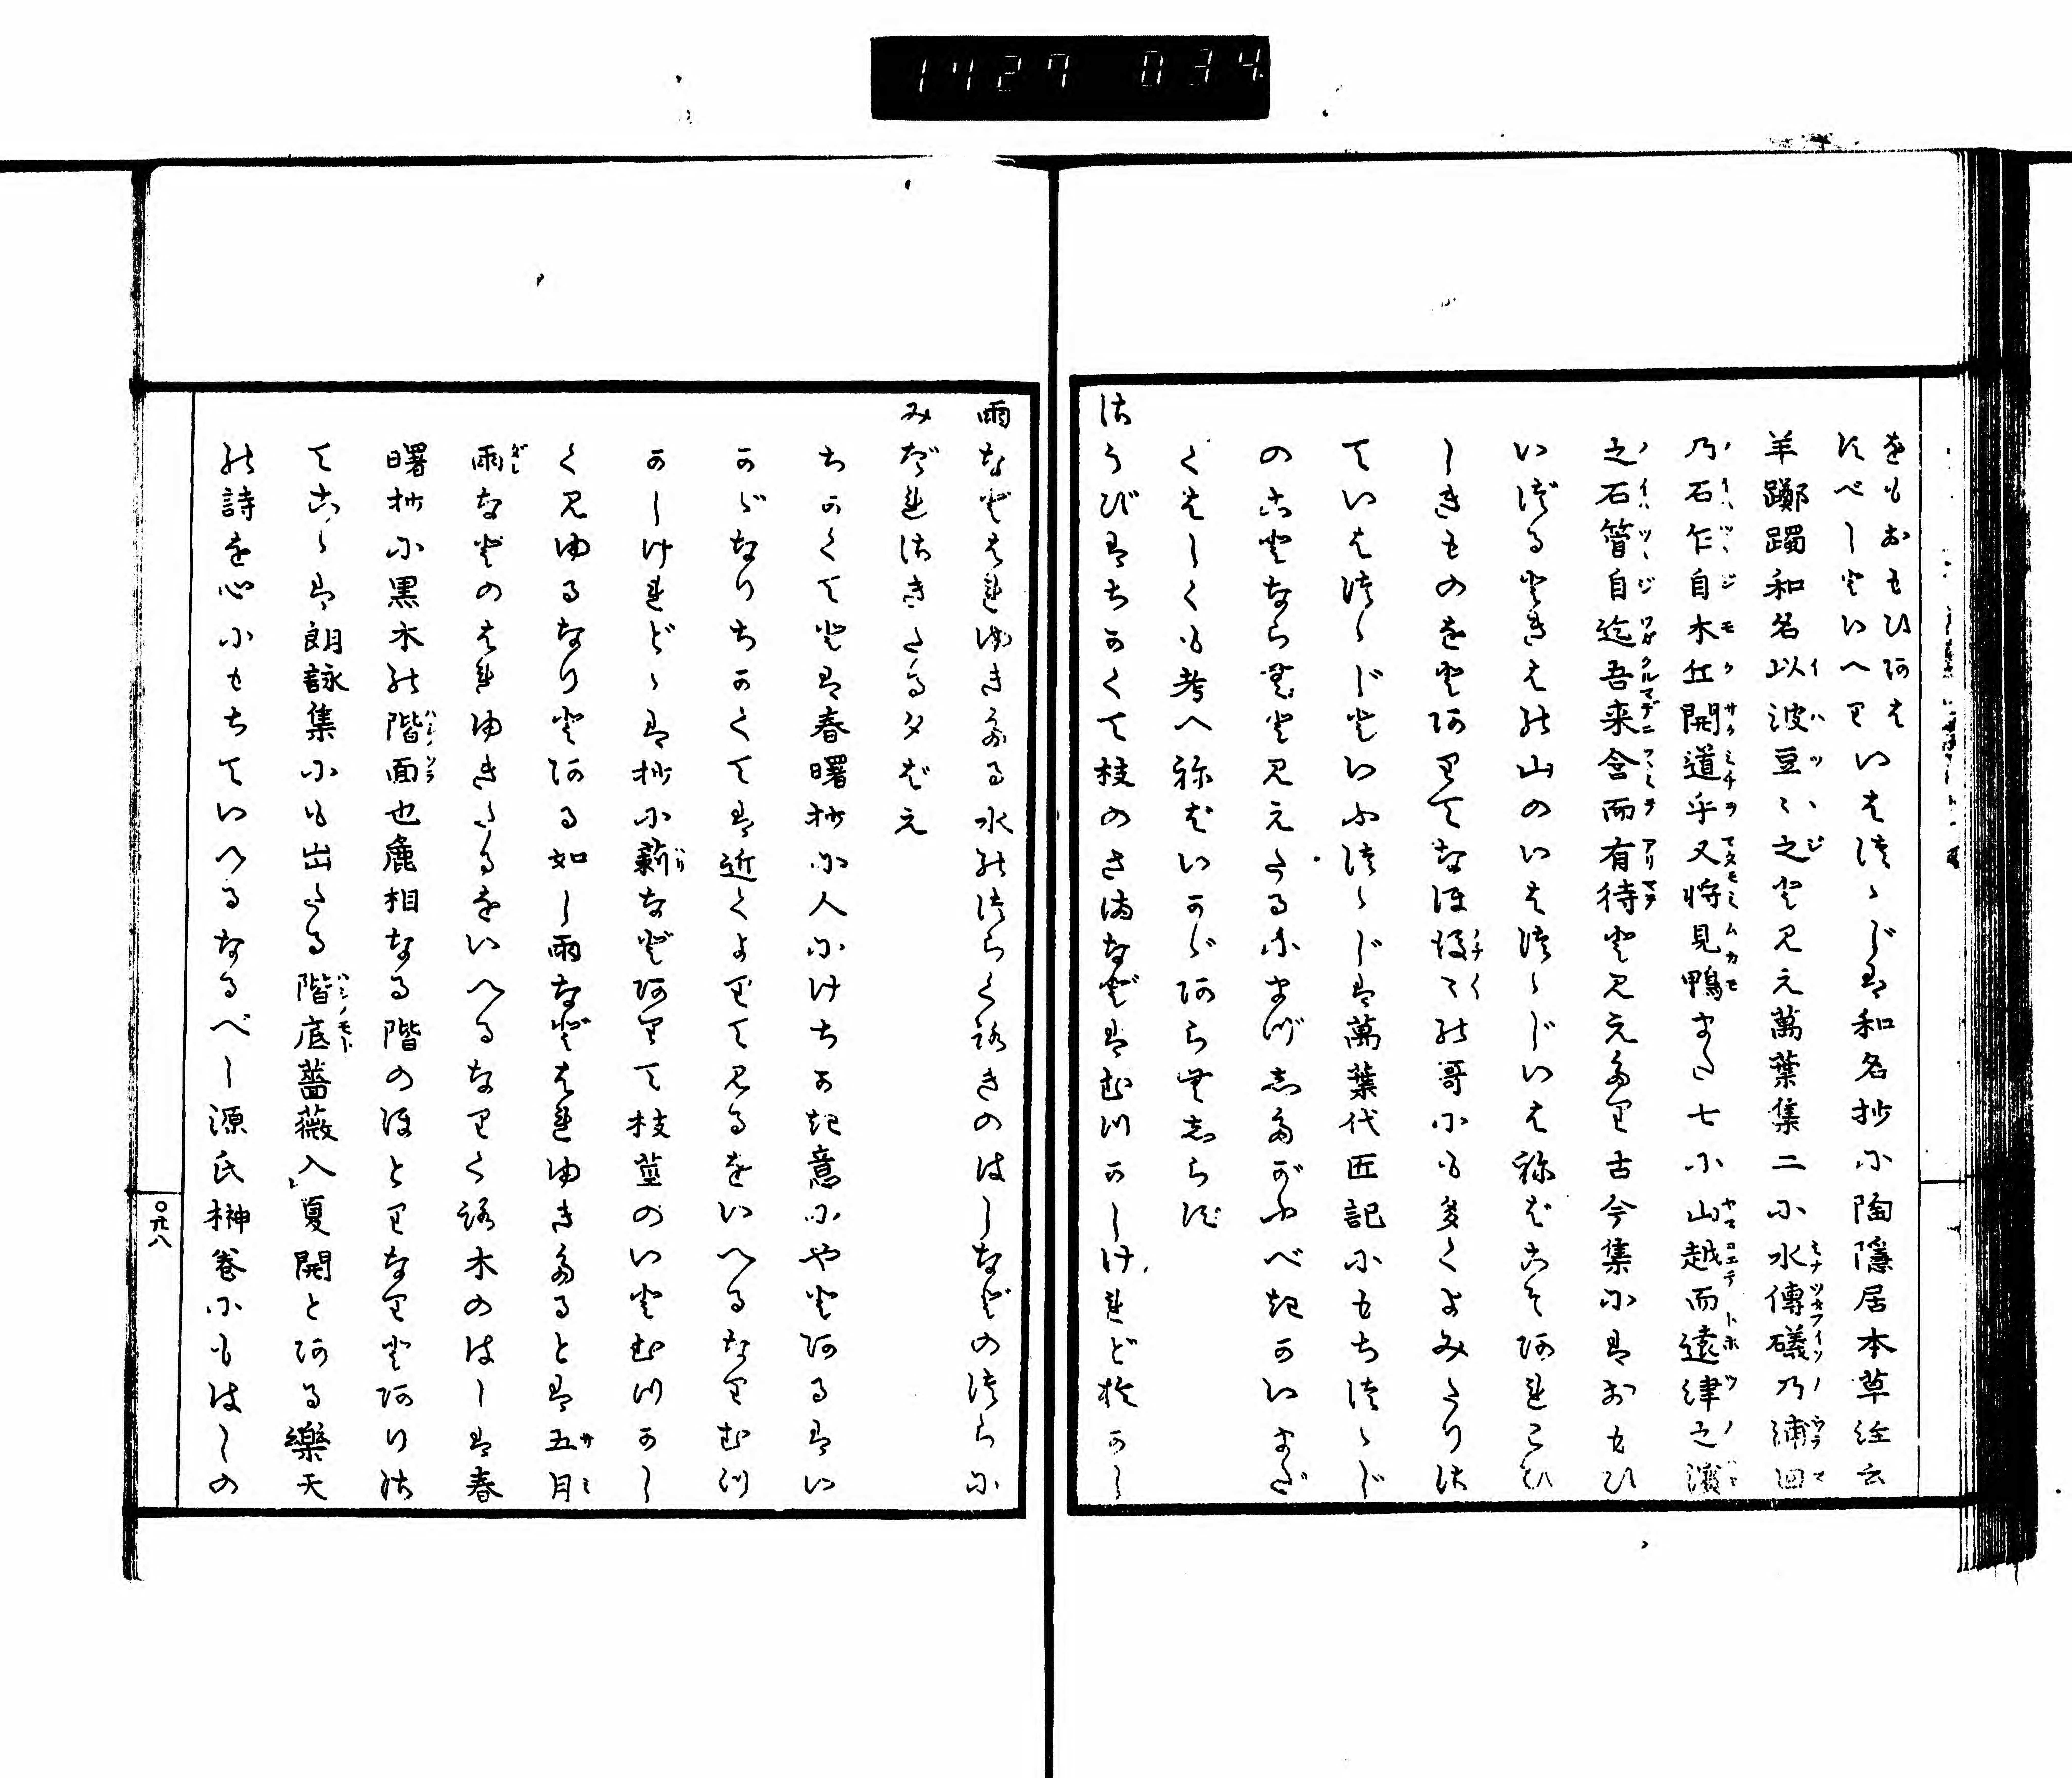 1427 034
をもおもひあは
すべしといへり いはつゝじは和名抄に陶隠居本草経云
羊躑躅和名以波豆々之と見え萬葉集二に水傳礒乃浦廻
乃石乍自木丘開道乎又将見鴨また七に山越而遠津之濱
之石管自迄吾来含而有待と見えたり古今集にはおもひ
いづるときはの山のいはつゝじいはねばこそあれこひ
しきものをとありてなほ後々の哥にも多くよみたりさ
ていはつゝじといふつゝじは萬葉代匠記にもちつゝじ
のことならむと見えたるにまづしたがふべきかいまだ
くはしくも考へねばいかゞあらむしらず
さうびはちかくて枝のさまなどはむつかしけれどをかし
雨などはれゆきたる水のつらくろきのはしなどのつらに
みだれさきたる夕ばえ
ちかくてとは春曙抄に人にけちかき意にやとあるはい
かゞなりちかくては近くよりて見るをいへるなりむつ
かしけれどゝは抄に薪などありて枝茎のいとむつかし
く見ゆるなりとある如し雨などはれゆきたるとは五月
雨などのはれゆきたるをいへるなりくろ木のはしは春
曙抄に黒木の階面也麁相なる階のほとりなりとありさ
てこゝは朗詠集にも出たる階底薔薇入夏開とある樂天
の詩を心にもちていへるなるべし源氏榊巻にもはしの
〇六八